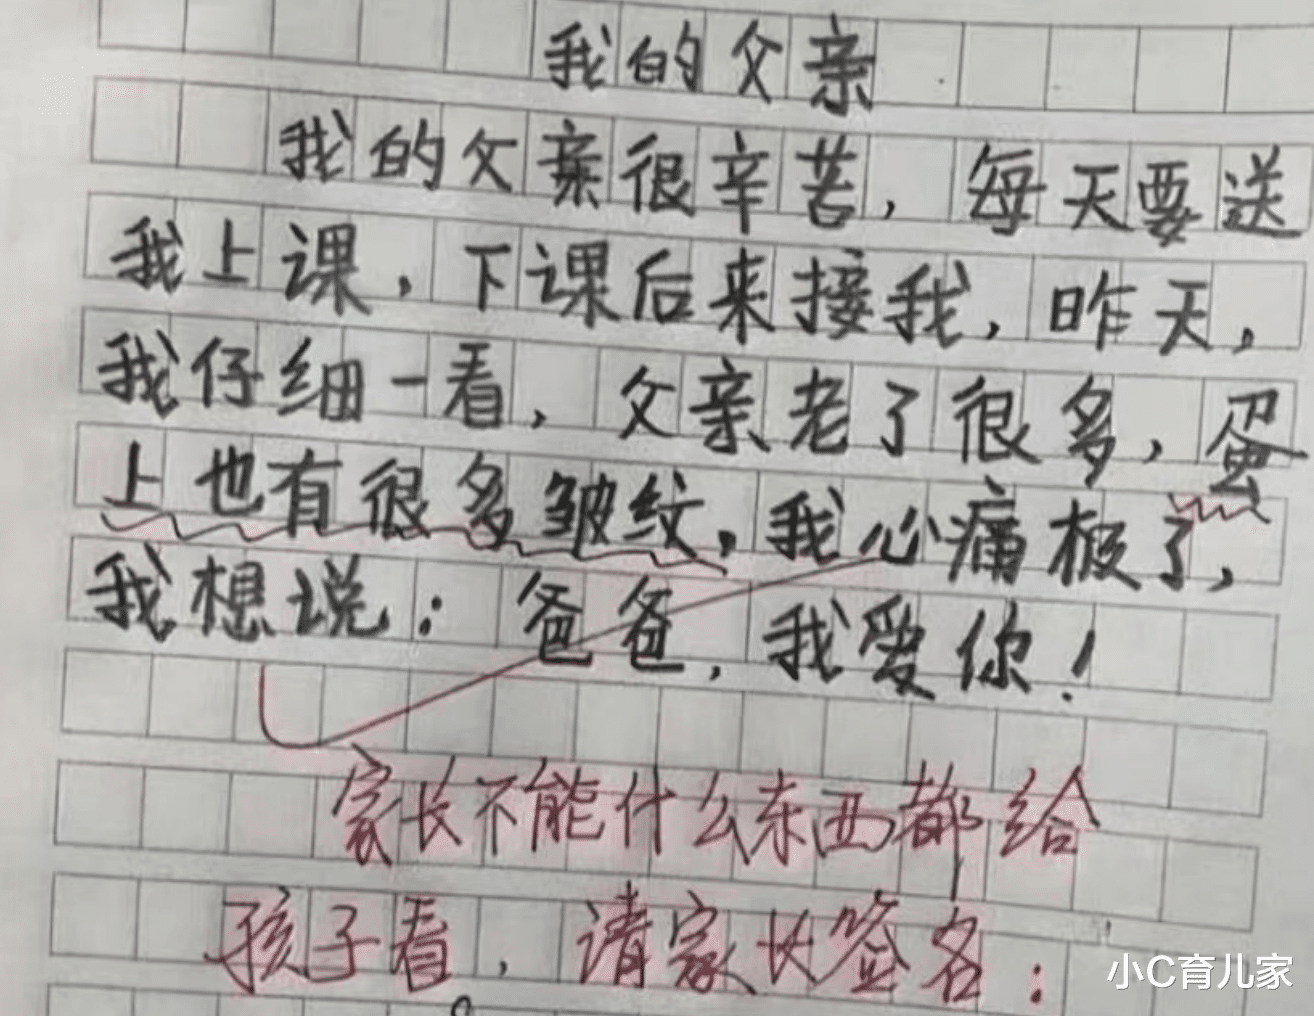 我的父亲
我的父亲很辛苦，每天要送
我上课，下课后来接我，昨天，
我仔细一看，父亲老了很多，蛋
上也有很多皱纹。我心痛极了，
我想说：爸爸，我爱你！
家长不能什么东西都给
孩子看，请家长签名：
小C育儿家